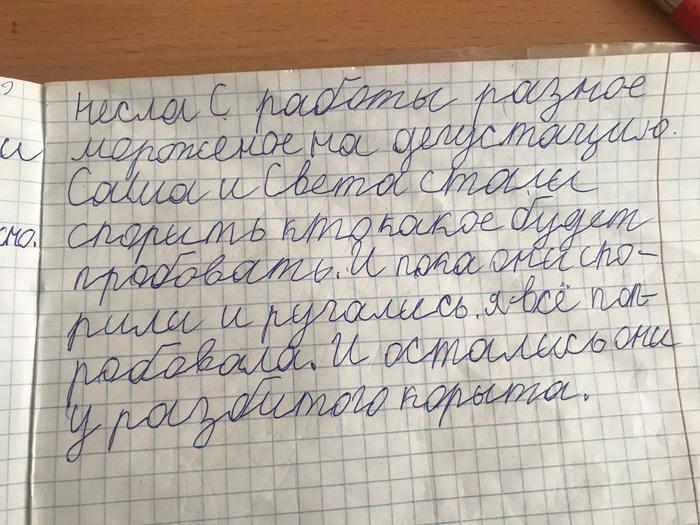 ?
несла с работы разное
и мороженое на дегустацию.
Саша и Света стали
сно. спорить кто какое будет
пробовать. И пока они спо-
рили и ругались, я всё поп-
робовала. И остались они
у разбитого корыта.